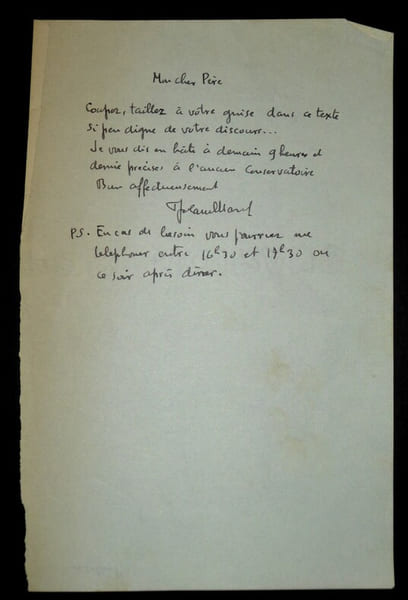 Mon cher Père
Coupez, taillez à votre guise dans ce texte
si peu digne de votre discours...
Je vous dis en hâte à demain 9 heures et
demie précises à l'ancien Conservatoire
Bien affectueusement
P.S. En cas de besoin vous pourriez me
telephoner entre 16h30 et 17h30 ou
ce soir après dîner.